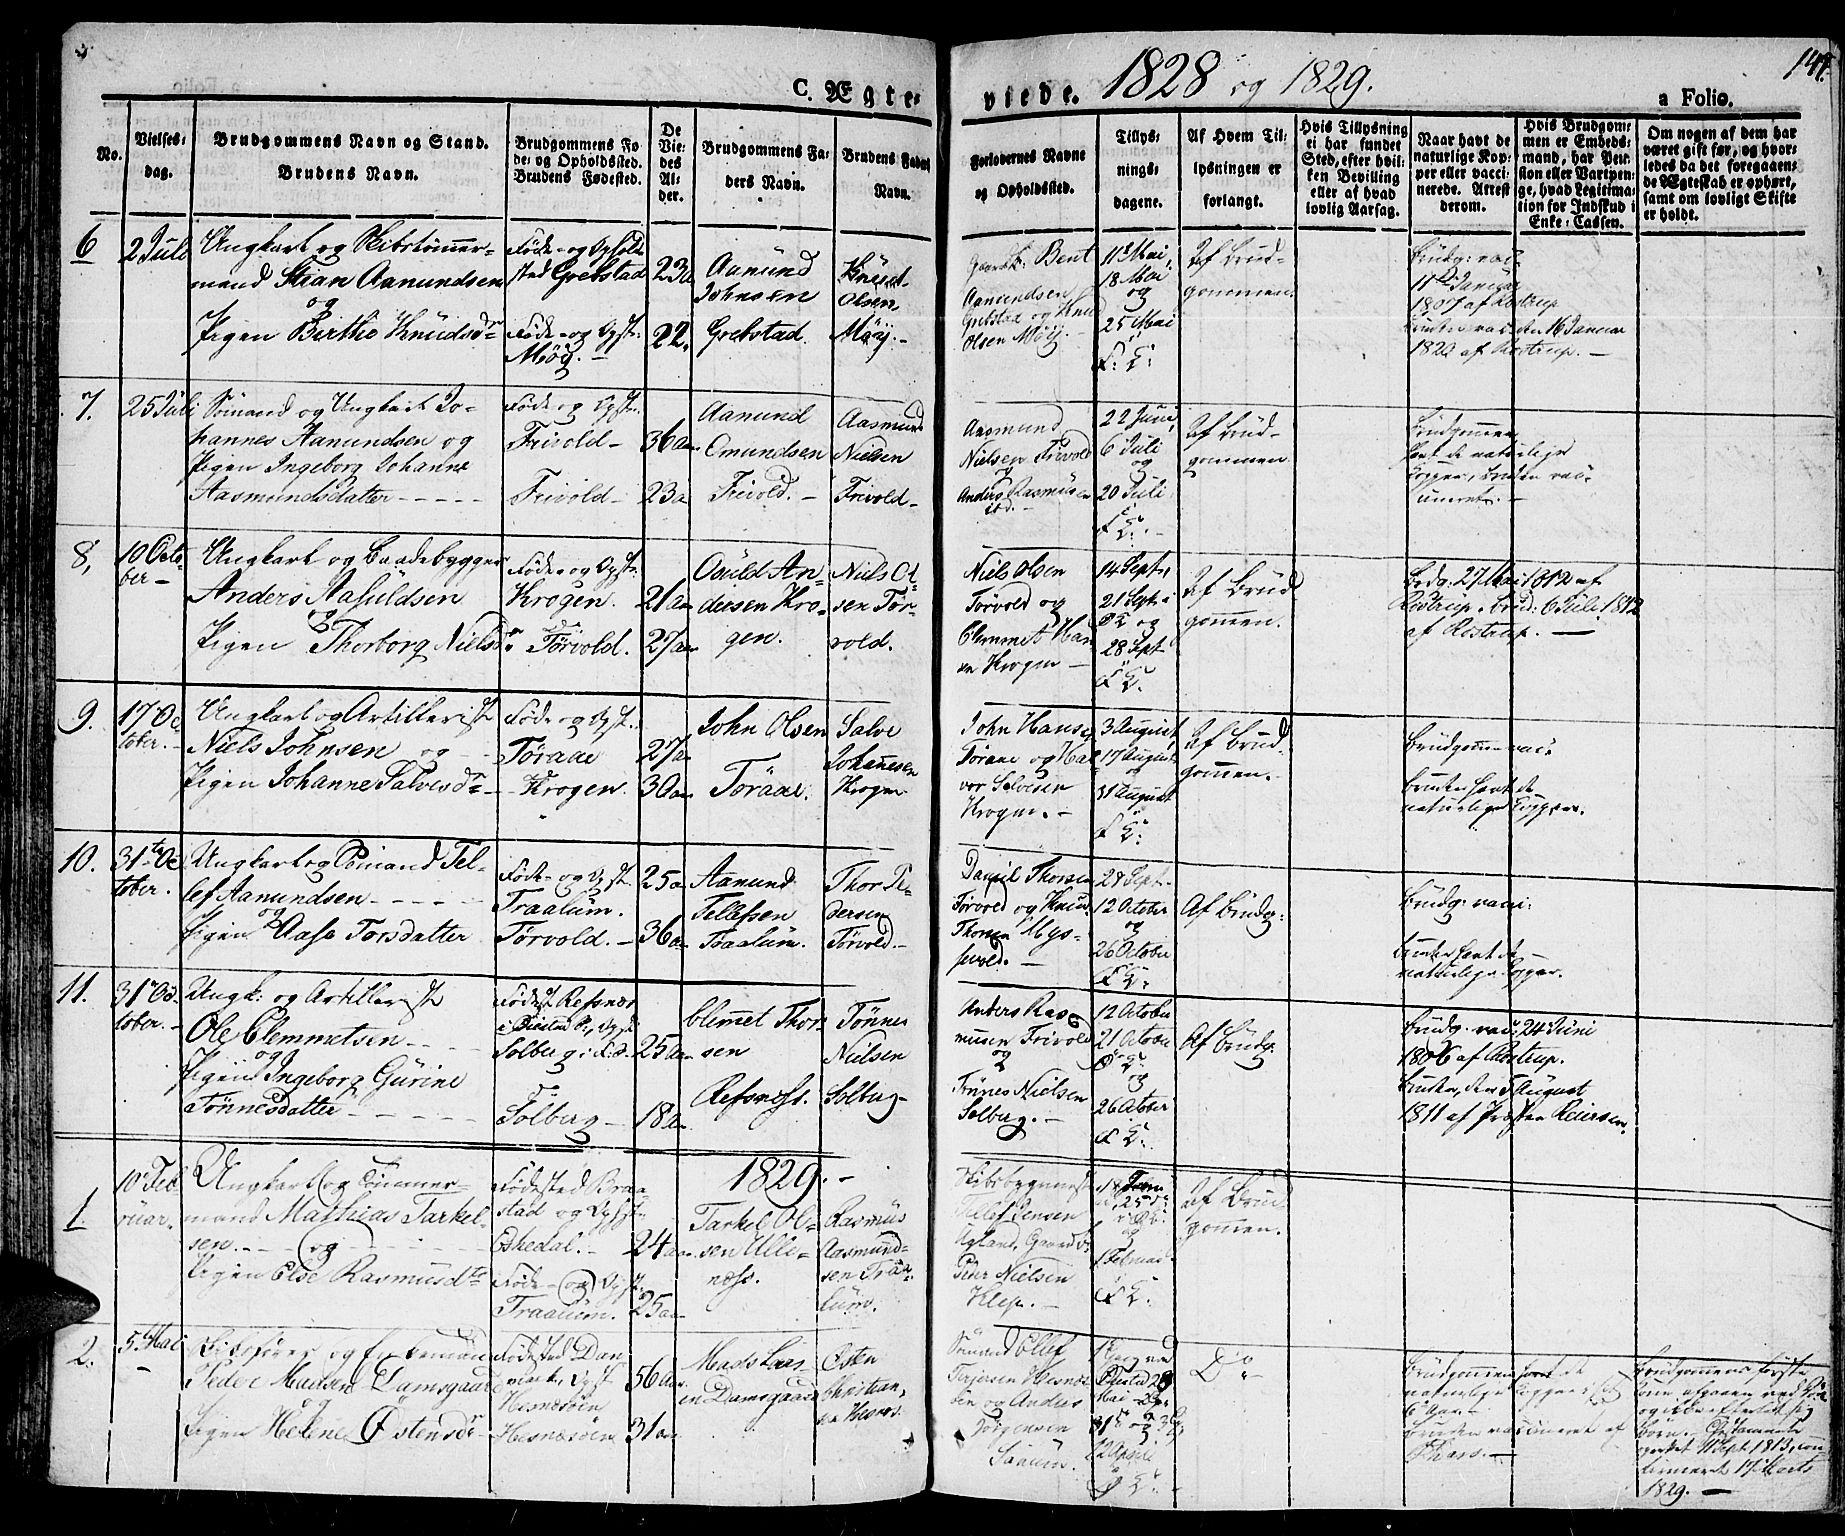 C. Ægte-
viede. 1828 og 1829.
147.
a Folio.
No.
Vielses-
dag.
Brudgommens Navn og Stand.
Brudens Navn.
Brudgommens Fø-
de- og Opholdssted.
Brudens Fødested.
De
Vie-
des
Al-
der.
Brudgommens Fa-
ders Navn.
Brudens Faders
Navn.
Forlovernes Navne
og Opholdssted.
Tillys-
nings-
dagene.
Af Hvem Til-
lysningen er
forlangt.
Hvis Tillysning
ei har fundet
Sted, efter hvil-
ken Bevilling
eller af hvad
lovlig Aarsag.
Naar havt de
naturlige Kop-
per eller vacci-
nerede. Attest
derom.
Hvis Brudgom-
men er Embeds-
mand, har Pen-
sion eller Vartpen-
ge, hvad Legitima-
tion for Indskud i
Enke-Cassen.
Om nogen af dem har
været gift før, og hvor-
ledes da det foregaaen-
de Ægteskab er ophørt,
samt om lovligt Skifte
er holdt.
6
2 Juli
Ungkarl og Skibstømmer-
mand Stian Aanundsen
og
Pigen Birthe Knudsdr
Føde- og Ophold
sted Grebstad
Føde- og Opst.
Møÿ. -
23a
22.
Aanund
Johnsen
Grebstad.
Knud
Olsen,
Møÿ.-
Gaardb: Bent
Aanundsen
Grebstad og Knud
Olsen Møÿ.
11 Mai,
18 Mai
og
25 Mai
Af Brud-
gommen.
Brudg: vac:
11 Januar
1807 af Rostrup
Bruden vac. den 16 Januar
1820 af Rostrup. -
7.
25 Juli
Sømand og Ungkarl Jo-
hannes Aanundsen og
Pigen Ingeborg Johanne
Aasmundsdatter - - - -
Føde og Opst.
Frivold-
Frivold-
36a
23a
Aanund
Omundsen
Frivold. -
Aasmund
Nielsen
Frivold-
Aasmund
Nielsen Frivold
og
Anders Rasmusen
ibd.-
22 Juni,
6 Juli
og
20 Juli
Af Brud-
gommen
Brudgommen
havt de naturlige
Kopper, Bruden vac-
cineret. -
8,
10 Octo
ber-
Ungkarl og Baadebygger
Anders Aasuldsen
og
Pigen Thorborg Nielsdr
Føde- og Opst.
Krogen.
Tørvold.
21a
27a
Osuld An-
dersen Kro-
gen.
Niels Ol-
sen Tør-
vold.
Niels Olsen
Tørvold og
Clemmet Han
sen Krogen -
14 Sept:
21 Sept:
og
28 Sept
Af Brud
gommen.
Brdg: 27 Mai 1812 af
Rostrup, Brud: 6 Juli 1812
af Rostrup. -
9.
17 Oc
tober.-
Ungkarl og Artillerist
Niels Johnsen og
Pigen Johanne Salvesdr
Føde- og Opst.
Tøraae
Krogen.
27a
30a
John Olsen
Töraae.
Salve
Johannesen
Krogen
John Hansen
Töraae og Hal-
vor Salvesen
Krogen. -
3 August
17 August
og
31 August
Af Brud
gommen.
Brudgommen vac:
Bruden havt de
naturlige Kopper.
10.
31te Oc
tober.
Ungkarl og Sømand Tel-
lef Aanundsen - - - -
og
Pigen Aase Torsdatter
Føde- og Opst.
Traalum.
Törvold. -
25a
36a
Aanund
Tellefsen
Traalum.
Thor Pe-
dersen
Törvold-
Daniel Thorsen
Törvold og Knud
Thorsen Mys-
sevold. -
28 Sept
12 October
og
26 October
Af Brudg:
Brudg: vacc:
Bruden havt de
naturlige Kopper.
11.
31 Oc-
tober. -
Ungk: og Artillerist
Ole Clemmetsen - - -
og
Pigen Ingeborg Gurine
Tønnesdatter - - - -
Födest. Refsnæs
Solberg
Solberg -
25a
18a
Clemet Thor-
sen
Refsnæss.
Tønnes
Nielsen
Solberg-
Anders Ras-
musen Frivold
og
Tønnes Nielsen
Solberg. -
12 October
21 October
og
26 October
Af Brudg:
Brudg: vac: 24 Juni
1806 af Rostrup.
Bruden, den 5 August
1811 af Præsten Reiersen.
1829. -
1.
10 Feb
ruar.
Ungkarl og Tømmer-
mand Mathias Tarkel-
sen. - - - og - - - -
Pigen Else Rasmusdtr
Födested Braa-
stad og Opst.
Eshedal. -
Føde- og Opst.
Traalum.
24a
25a
Tarkel Ol-
sen Ulle-
næss.
Rasmus
Aasmund-
sen Traa-
lum.
Skibsbygmest.
Tellef Jensen
Agland, Gaardb.
Peder Nielsen
Klep. -
25
og
1 Februar
Af Brud
gommen.
2.
5 Mai
-
Enkemand
Peder Madsen Damsgaard
og
Pigen Helene Østensdr
Födested Dan
mark, Opst.
Hesnæsöen
Hesnæsöen
56a
31a
Mads Lars
en Damsgaard
Østen
Christian-
sen Hesnæs.
Sømand Ellef
Terjesen Hesnæs
öen og Anders
Jörgensen
12 April
Do
Brudgommen havt de
naturlige Kopper
6 Aar -
Bruden vaccineret af
Brudgommens første
Kone afgaaen ved Dø
Børn.
Sept. 1813,
17 Marts
1829. -